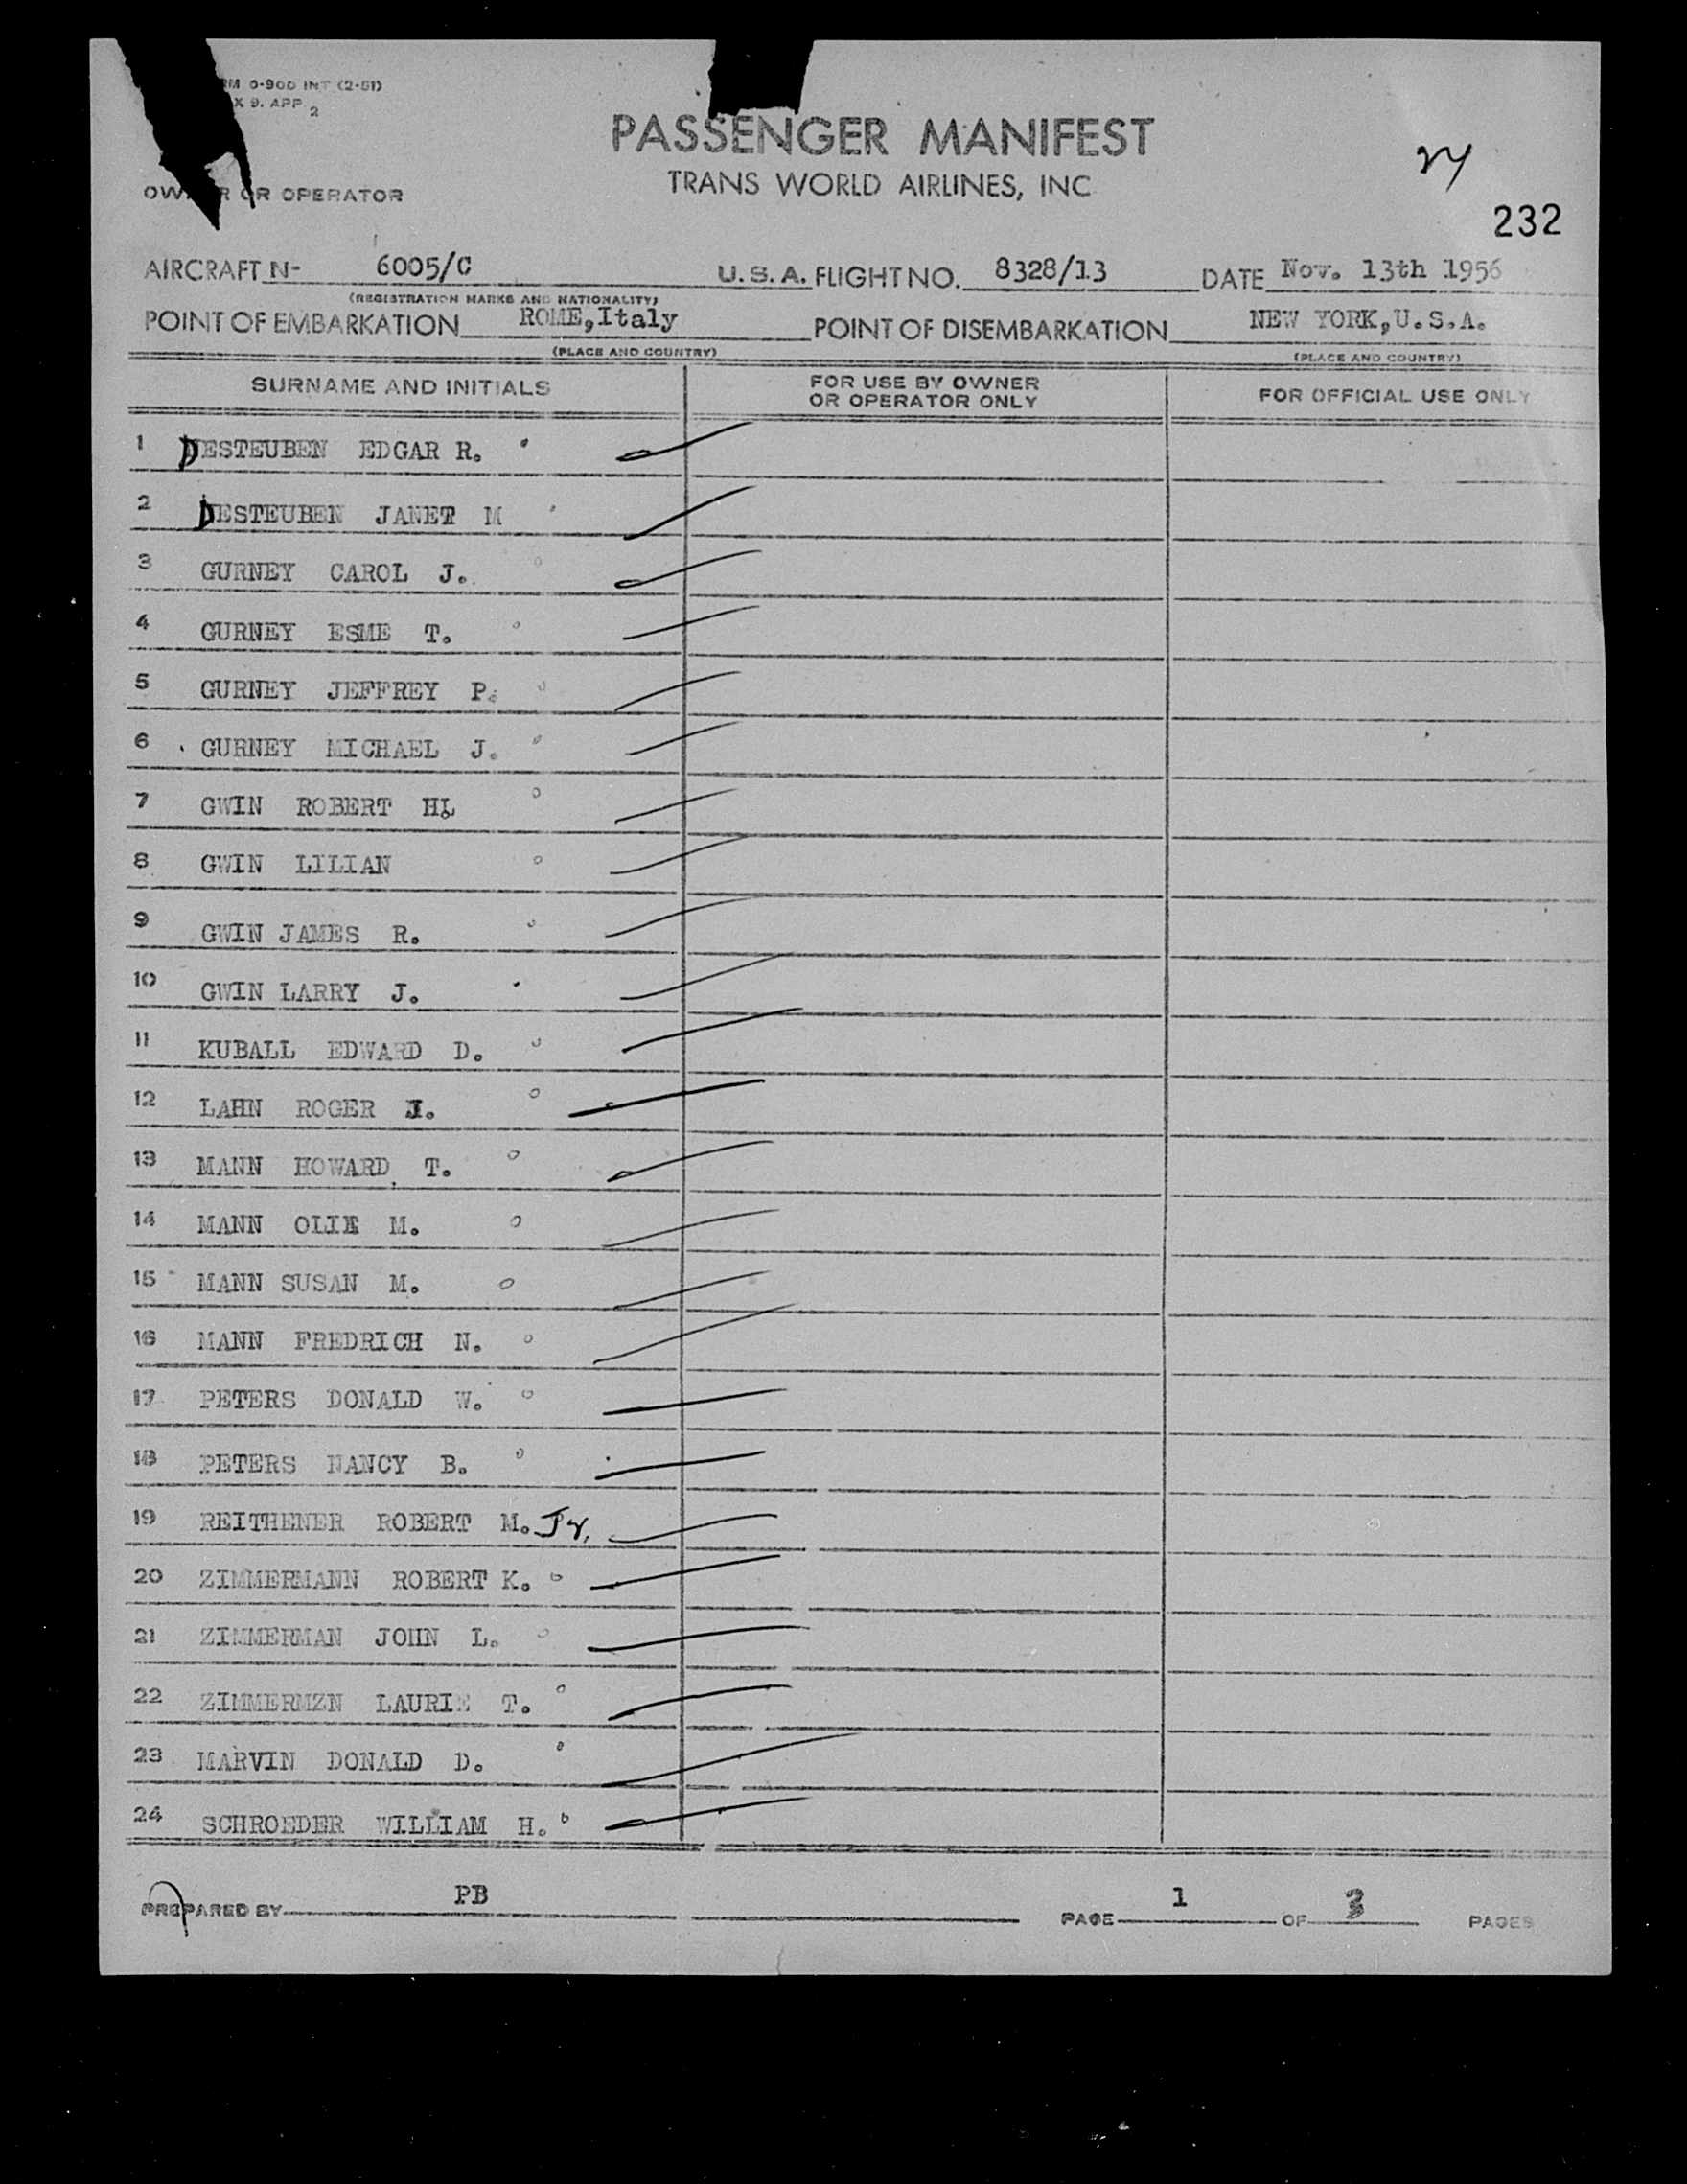 RM O-900 INT (2-51)
X 9. APP 2
PASSENGER MANIFEST
TRANS WORLD AIRLINES, INC
24
232
OWNER OR OPERATOR
AIRCRAFT N- 6005/C U.S.A. FLIGHT NO. 8328/13 DATE Nov. 13th 1956
(REGISTRATION MARKS AND NATIONALITY)
POINT OF EMBARKATION ROME,Italy POINT OF DISEMBARKATION NEW YORK,U.S.A.
(PLACE AND COUNTRY) (PLACE AND COUNTRY)
SURNAME AND INITIALS FOR USE BY OWNER OR OPERATOR ONLY FOR OFFICIAL USE ONLY
1 DESTEUBEN EDGAR R.
2 DESTEUBEN JANET M
3 GURNEY CAROL J.
4 GURNEY ESME T.
5 GURNEY JEFFREY P.
6 GURNEY MICHAEL J.
7 GWIN ROBERT H.
8 GWIN LILIAN
9 GWIN JAMES R.
10 GWIN LARRY J.
11 KUBALL EDWARD D.
12 LAHN ROGER J.
13 MANN HOWARD T.
14 MANN OLIE M.
15 MANN SUSAN M.
16 MANN FREDRICH N.
17 PETERS DONALD W.
18 PETERS NANCY B.
19 REITHENER ROBERT M. Jr.
20 ZIMMERMANN ROBERT K.
21 ZIMMERMAN JOHN L.
22 ZIMMERMZN LAURIE T.
23 MARVIN DONALD D.
24 SCHROEDER WILLIAM H.
PREPARED BY PB PAGE 1 OF 3 PAGES